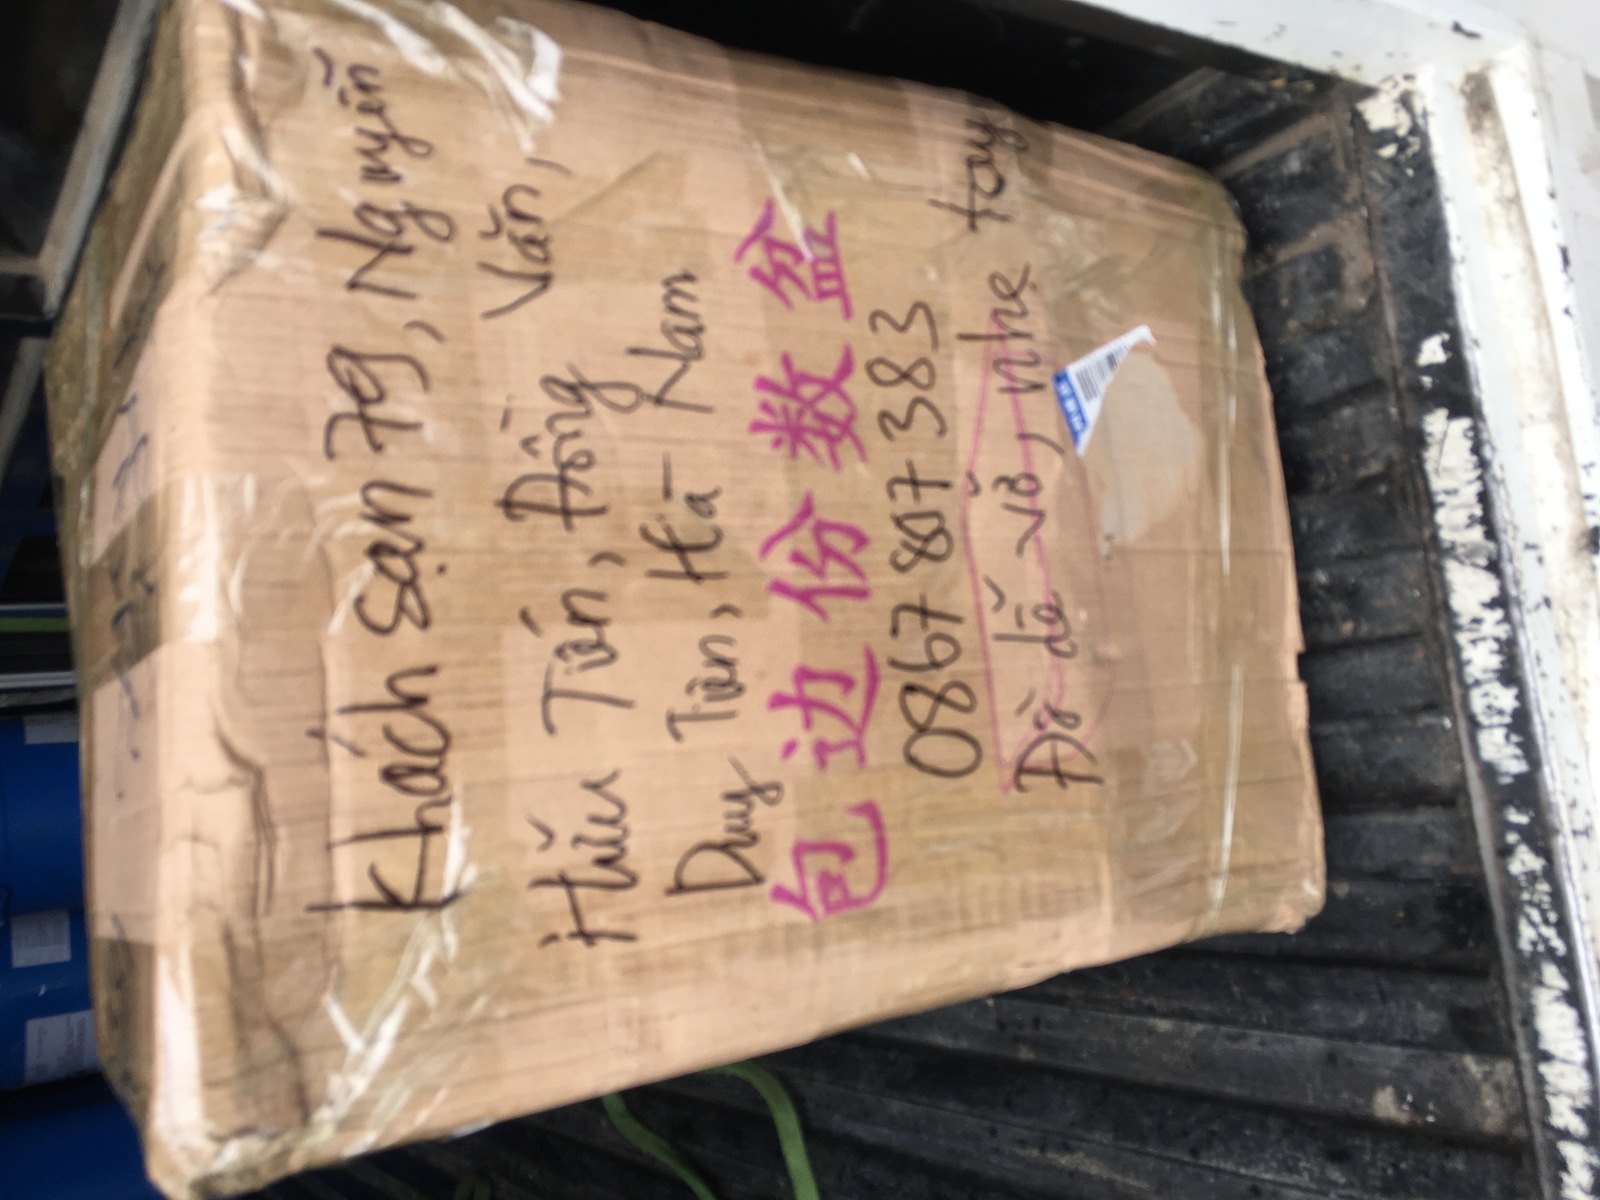 Khách sạn 79, Nguyễn
Văn,
Hữu Tiến, Đồng
Duy Tiên, Hà Nam
包边份数盆
0867 807 383
Đồ dễ vỡ, nhẹ tay